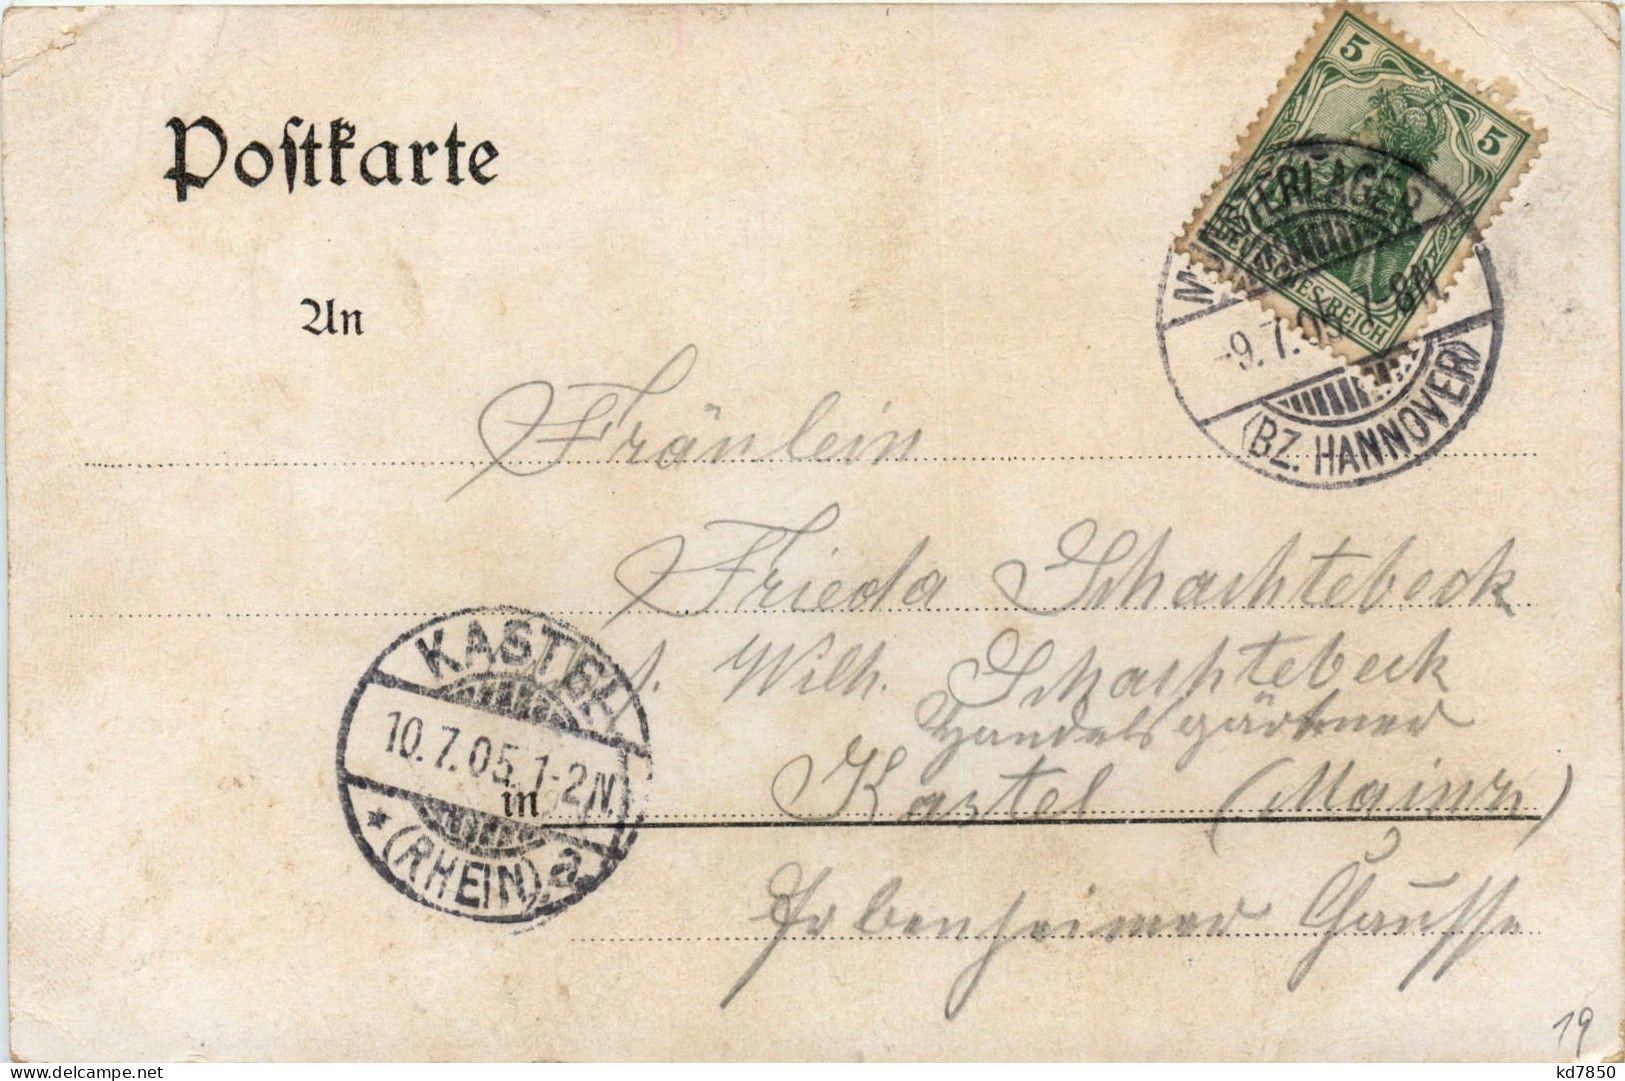 Postkarte
5 5
DEUTSCHES REICH
MUNSTERLAGER
-9.7.05 7-8N.
(BZ. HANNOVER)
An
Fräulein
Frieda Schachtebeck
Wilh. Schachtebeck
Handelsgärtner
KASTEL
10.7.05. 1-2N.
* (RHEIN) a
in
Kastel (Mainz)
Erbenheimer
19
kd7850